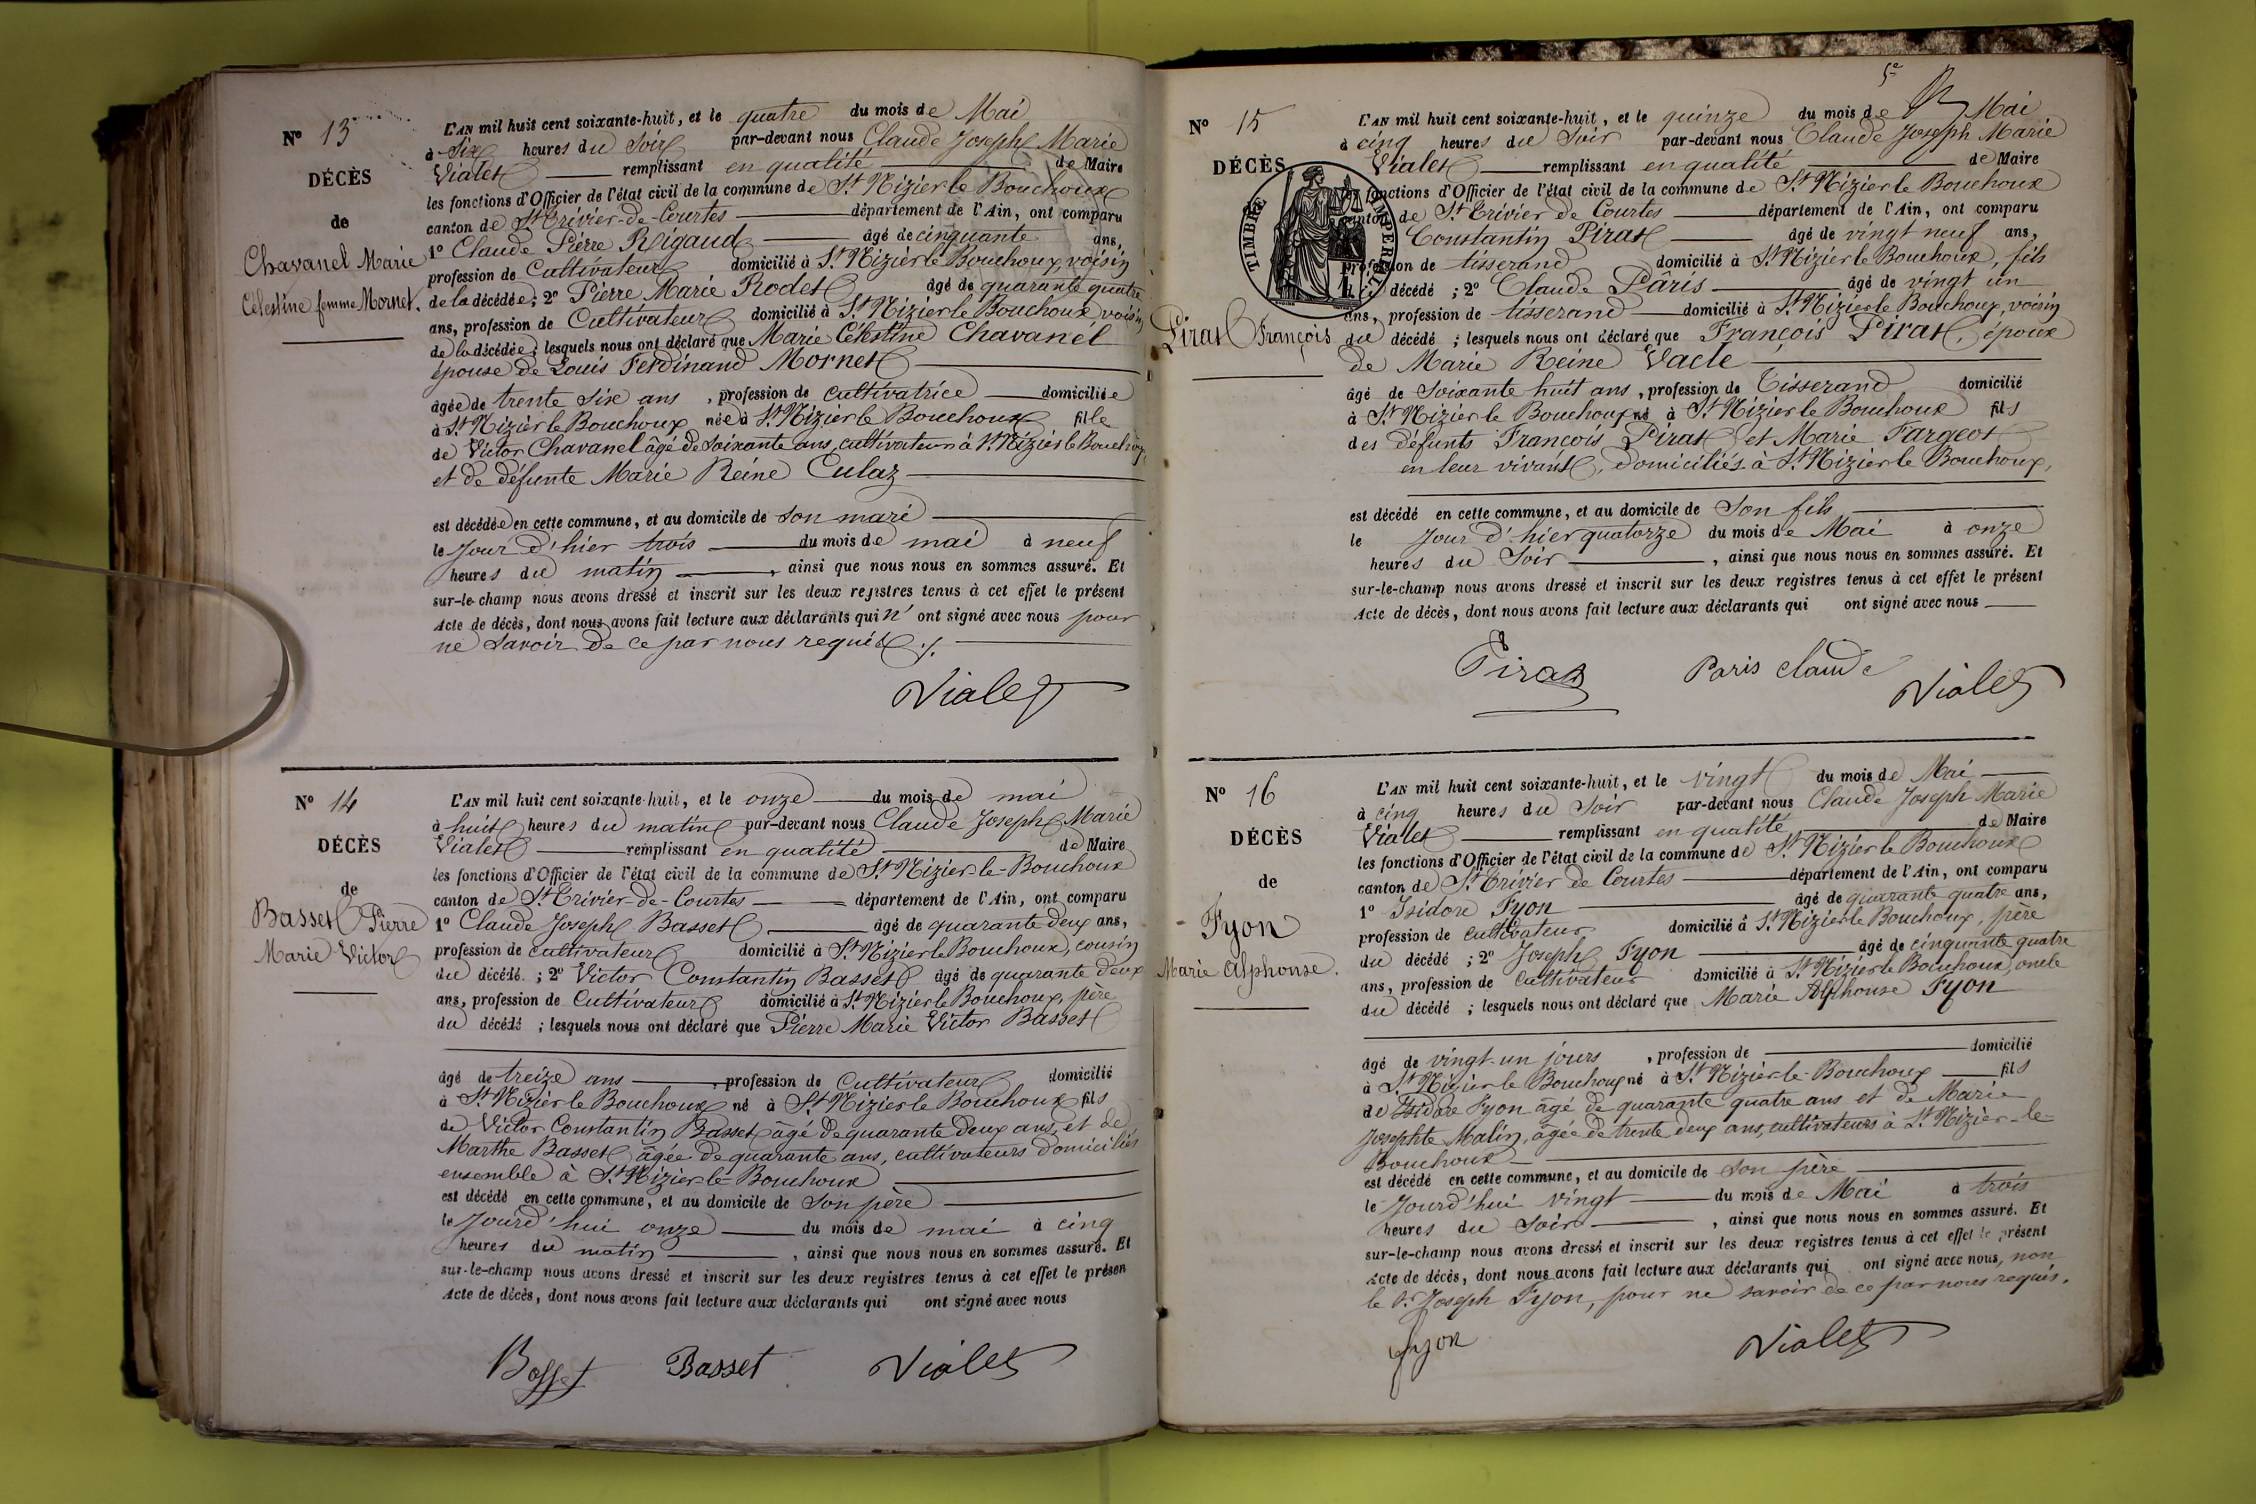 Nº 13
DÉCÈS
de
Chavanel Marie
Célestine femme Mornet.
L'AN mil huit cent soixante-huit, et le quatre du mois de Mai
à Six heures du Soir par-devant nous Claude Joseph Marie
Vialet remplissant en qualité de Maire
les fonctions d'Officier de l'état civil de la commune de St Nizier le Bouchoux
canton de St Trivier-de-Courtes département de l'Ain, ont comparu
1º Claude Pierre Rigaud âgé de cinquante ans,
profession de Cultivateur domicilié à St Nizier le Bouchoux, voisin
de la décédée; 2º Pierre Marie Rodet âgé de quarante quatre
ans, profession de Cultivateur domicilié à St Nizier le Bouchoux voisin
de la décédée; lesquels nous ont déclaré que Marie Célestine Chavanel
épouse de Louis Ferdinand Mornet
âgée de trente six ans, profession de cultivatrice domiciliée
à St Nizier le Bouchoux née à St Nizier le Bouchoux fille
de Victor Chavanel âgé de soixante ans, cultivateur à St Nizier le Bouchoux,
et de défunte Marie Reine Culaz
est décédée en cette commune, et au domicile de son mari
le jour d'hier trois du mois de mai à neuf
heures du matin, ainsi que nous nous en sommes assuré. Et
sur-le-champ nous avons dressé et inscrit sur les deux registres tenus à cet effet le présent
Acte de décès, dont nous avons fait lecture aux déclarants qui n'ont signé avec nous pour
ne savoir de ce par nous requis ./.
Vialet
Nº 14
DÉCÈS
de
Basset Pierre
Marie Victor
L'AN mil huit cent soixante-huit, et le onze du mois de mai
à huit heures du matin par-devant nous Claude Joseph Marie
Vialet remplissant en qualité de Maire
les fonctions d'Officier de l'état civil de la commune de St Nizier-le-Bouchoux
canton de St Trivier-de-Courtes département de l'Ain, ont comparu
1º Claude Joseph Basset âgé de quarante deux ans,
profession de cultivateur domicilié à St Nizier le Bouchoux, cousin
du décédé ; 2º Victor Constantin Basset âgé de quarante deux
ans, profession de Cultivateur domicilié à St Nizier le Bouchoux, père
du décédé ; lesquels nous ont déclaré que Pierre Marie Victor Basset
âgé de treize ans, profession de Cultivateur domicilié
à St Nizier le Bouchoux né à St Nizier le Bouchoux fils
de Victor Constantin Basset âgé de quarante deux ans, et de
Marthe Basset âgée de quarante ans, cultivateurs domiciliés
ensemble à St Nizier-le-Bouchoux
est décédé en cette commune, et au domicile de Son père
le jourd'hui onze du mois de mai à cinq
heures du matin, ainsi que nous nous en sommes assuré. Et
sur-le-champ nous avons dressé et inscrit sur les deux registres tenus à cet effet le présen
Acte de décès, dont nous avons fait lecture aux déclarants qui ont signé avec nous
Basset Basset Vialet
5e
Nº 15
DÉCÈS
TIMBRE IMPÉRIAL
Pirat François
L'AN mil huit cent soixante-huit, et le quinze du mois de Mai
à cinq heures du Soir par-devant nous Claude Joseph Marie
Vialet remplissant en qualité de Maire
fonctions d'Officier de l'état civil de la commune de St Nizier le Bouchoux
canton de St Trivier de Courtes département de l'Ain, ont comparu
Constantin Pirat âgé de vingt neuf ans,
profession de tisserand domicilié à St Nizier le Bouchoux, fils
décédé ; 2º Claude Pâris âgé de vingt un
ans, profession de tisserand domicilié à St Nizier le Bouchoux, voisin
du décédé ; lesquels nous ont déclaré que François Pirat, époux
de Marie Reine Vacle
âgé de Soixante huit ans, profession de Tisserand domicilié
à St Nizier le Bouchoux né à St Nizier le Bouchoux fils
des défunts François Pirat et Marie Fargeot
en leur vivant, domiciliés à St Nizier le Bouchoux,
est décédé en cette commune, et au domicile de Son fils
le Jour d'hier quatorze du mois de Mai à onze
heures du Soir, ainsi que nous nous en sommes assuré. Et
sur-le-champ nous avons dressé et inscrit sur les deux registres tenus à cet effet le présent
Acte de décès, dont nous avons fait lecture aux déclarants qui ont signé avec nous
Pirat Paris claude Vialet
Nº 16
DÉCÈS
de
Fyon
Marie Alphonse.
L'AN mil huit cent soixante-huit, et le vingt du mois de Mai
à cinq heures du Soir par-devant nous Claude Joseph Marie
Vialet remplissant en qualité de Maire
les fonctions d'Officier de l'état civil de la commune de St Nizier le Bouchoux
canton de St Trivier de Courtes département de l'Ain, ont comparu
1º Isidore Fyon âgé de quarante quatre ans,
profession de cultivateur domicilié à St Nizier le Bouchoux, père
du décédé ; 2º Joseph Fyon âgé de cinquante quatre
ans, profession de Cultivateur domicilié à St Nizier le Bouchoux, oncle
du décédé ; lesquels nous ont déclaré que Marie Alphonse Fyon
âgé de vingt-un jours, profession de domicilié
à St Nizier le Bouchoux né à St Nizier-le-Bouchoux fils
de Isidore Fyon âgé de quarante quatre ans et de Marie
Josephte Malin, âgée de trente deux ans, cultivateurs à St Nizier-le-
Bouchoux
est décédé en cette commune, et au domicile de son père
le Jourd'hui vingt du mois de Mai à trois
heures du Soir, ainsi que nous nous en sommes assuré. Et
sur-le-champ nous avons dressé et inscrit sur les deux registres tenus à cet effet le présent
Acte de décès, dont nous avons fait lecture aux déclarants qui ont signé avec nous, non
le Sr Joseph Fyon, pour ne savoir de ce par nous requis.
fyon Vialet